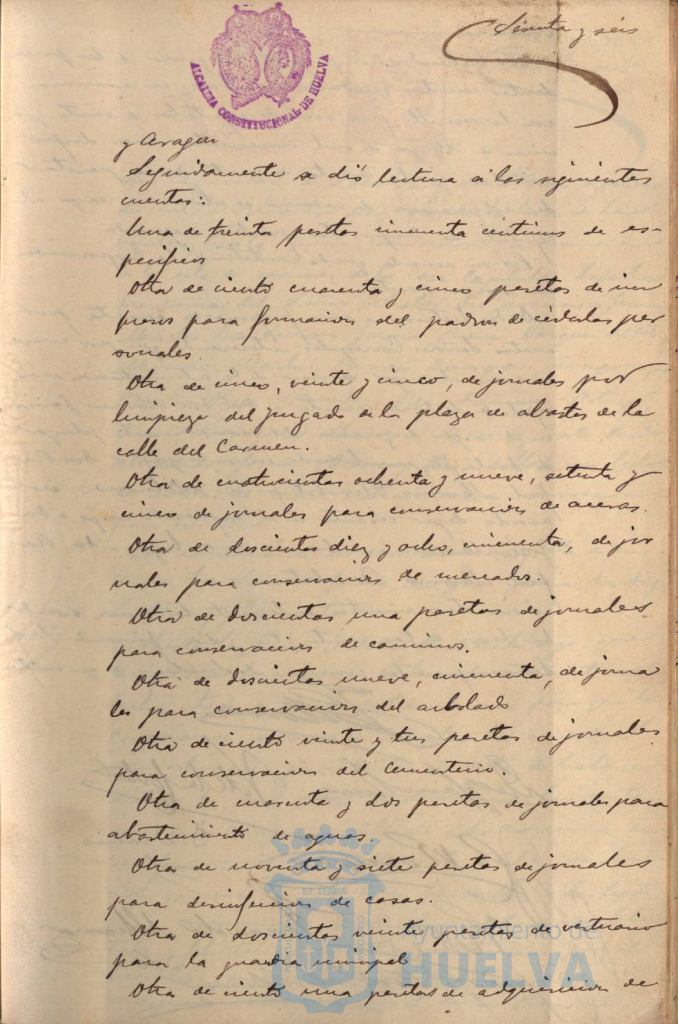 Sesenta y seis
ALCALDIA CONSTITUCIONAL DE HUELVA
y Aragon
Seguidamente se dió lectura á las siguientes
cuentas:
Una de treinta pesetas cincuenta centimos de es-
pecificos
Otra de ciento cuarenta y cinco pesetas de im
presos para formacion del padron de cédulas per
sonales.
Otra de cinco, veinte y cinco, de jornales por
limpieza del juzgado de la plaza de abastos de la
calle del Carmen.
Otra de cuatrocientas ochenta y nueve, setenta y
cinco de jornales para conservacion de aceras.
Otra de doscientas diez y ocho, cincuenta, de jor
nales para conservacion de mercados.
Otra de doscientas una pesetas de jornales
para conservacion de caminos.
Otra de doscientas nueve, cincuenta, de jorna
les para conservacion del arbolado
Otra de ciento veinte y tres pesetas de jornales
para conservacion del Cementerio.
Otra de cuarenta y dos pesetas de jornales para
abastecimiento de aguas.
Otra de noventa y siete pesetas de jornales
para desinfeccion de casas.
Otra de doscientas veinte pesetas de vestuario
para la guardia municipal
Otra de ciento una pesetas de adquisicion de
Ayuntamiento de
HUELVA